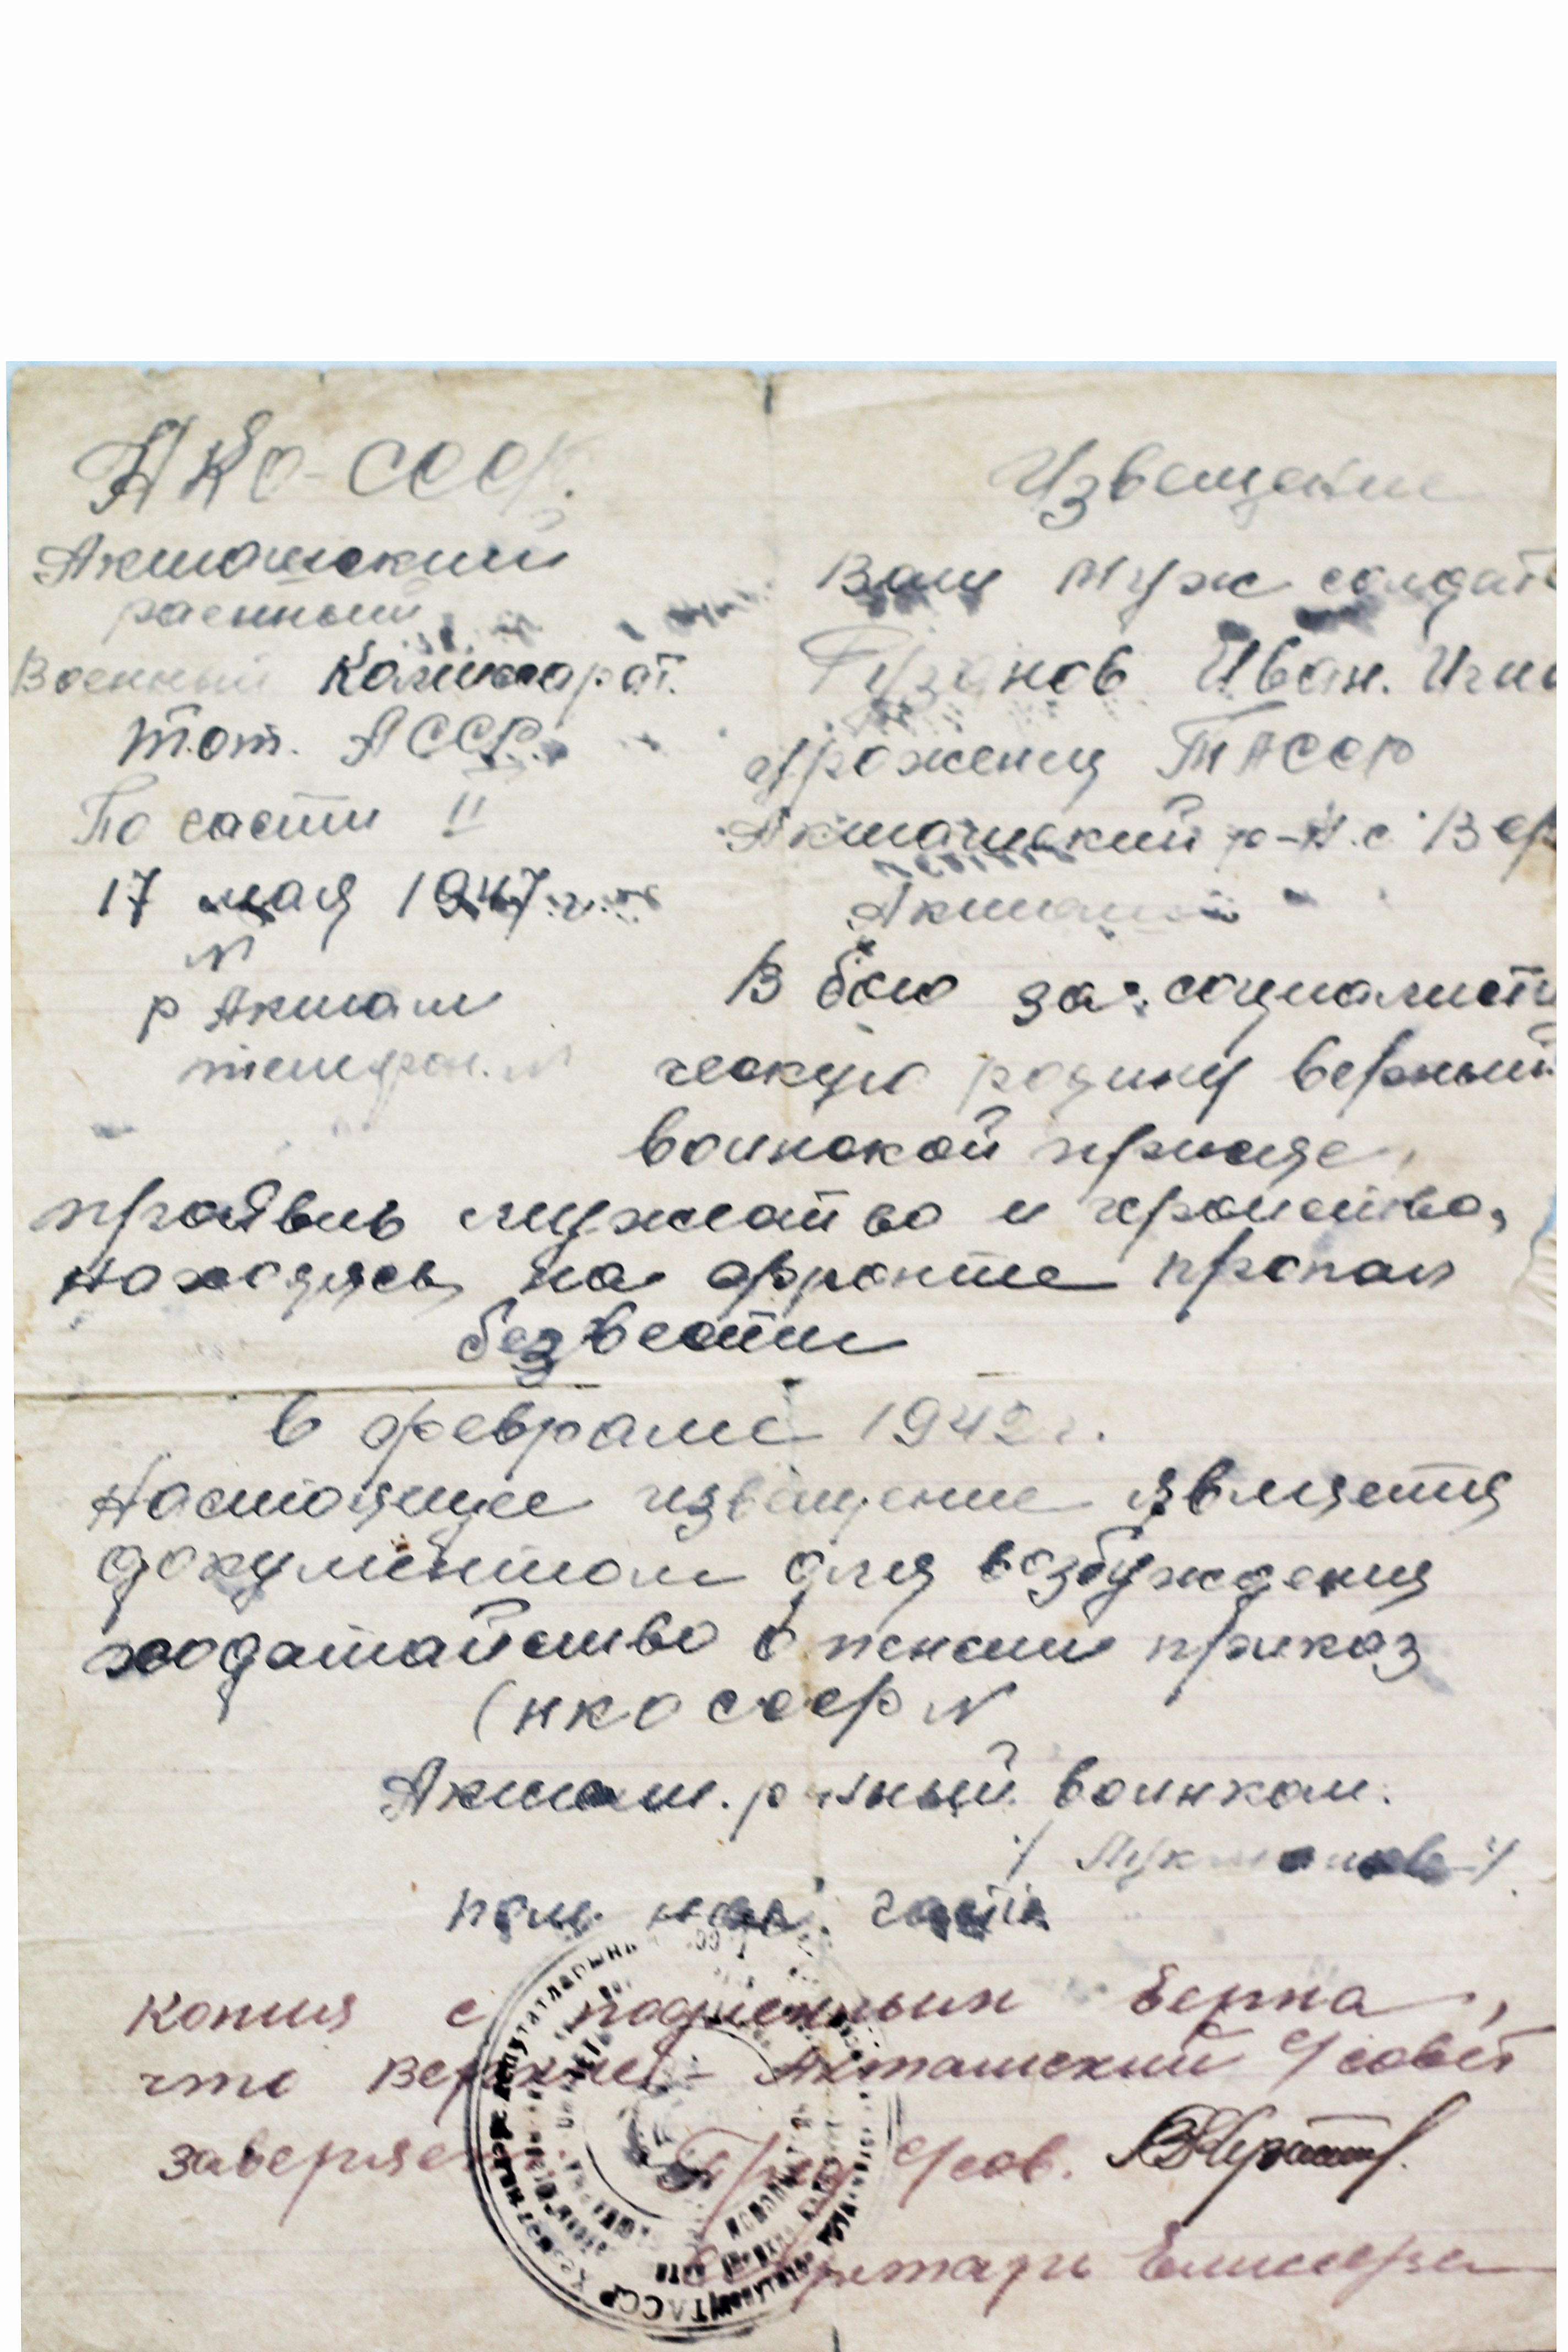 НКО-СССР.
Акташский
раенный
Военный Комисарат.
Тат. АССР.
По части II
17 мая 1947 г.
N
р Акташ
телефон. N
Извещение
Ваш муж солдат
Гузанов Иван. Игна
уроженец ТАССР
Акташский р-н. с. Вер
Акташ
В бою за социалисти
ческую родину верный
воинской присяге,
проявив мужество и геройство,
находясь на фронте пропал
безвести
в феврале 1942 г.
Настоящее извещение является
документом для возбуждения
ходатайство о пенсии приказ
(НКО СССР N
Акташ. р-нный воинком.
/ Мукминов /
пом. нач. части
Копия с подленным верна,
что Верхне-Акташский с/совет
заверяет Пред с/сов.
Секретарь